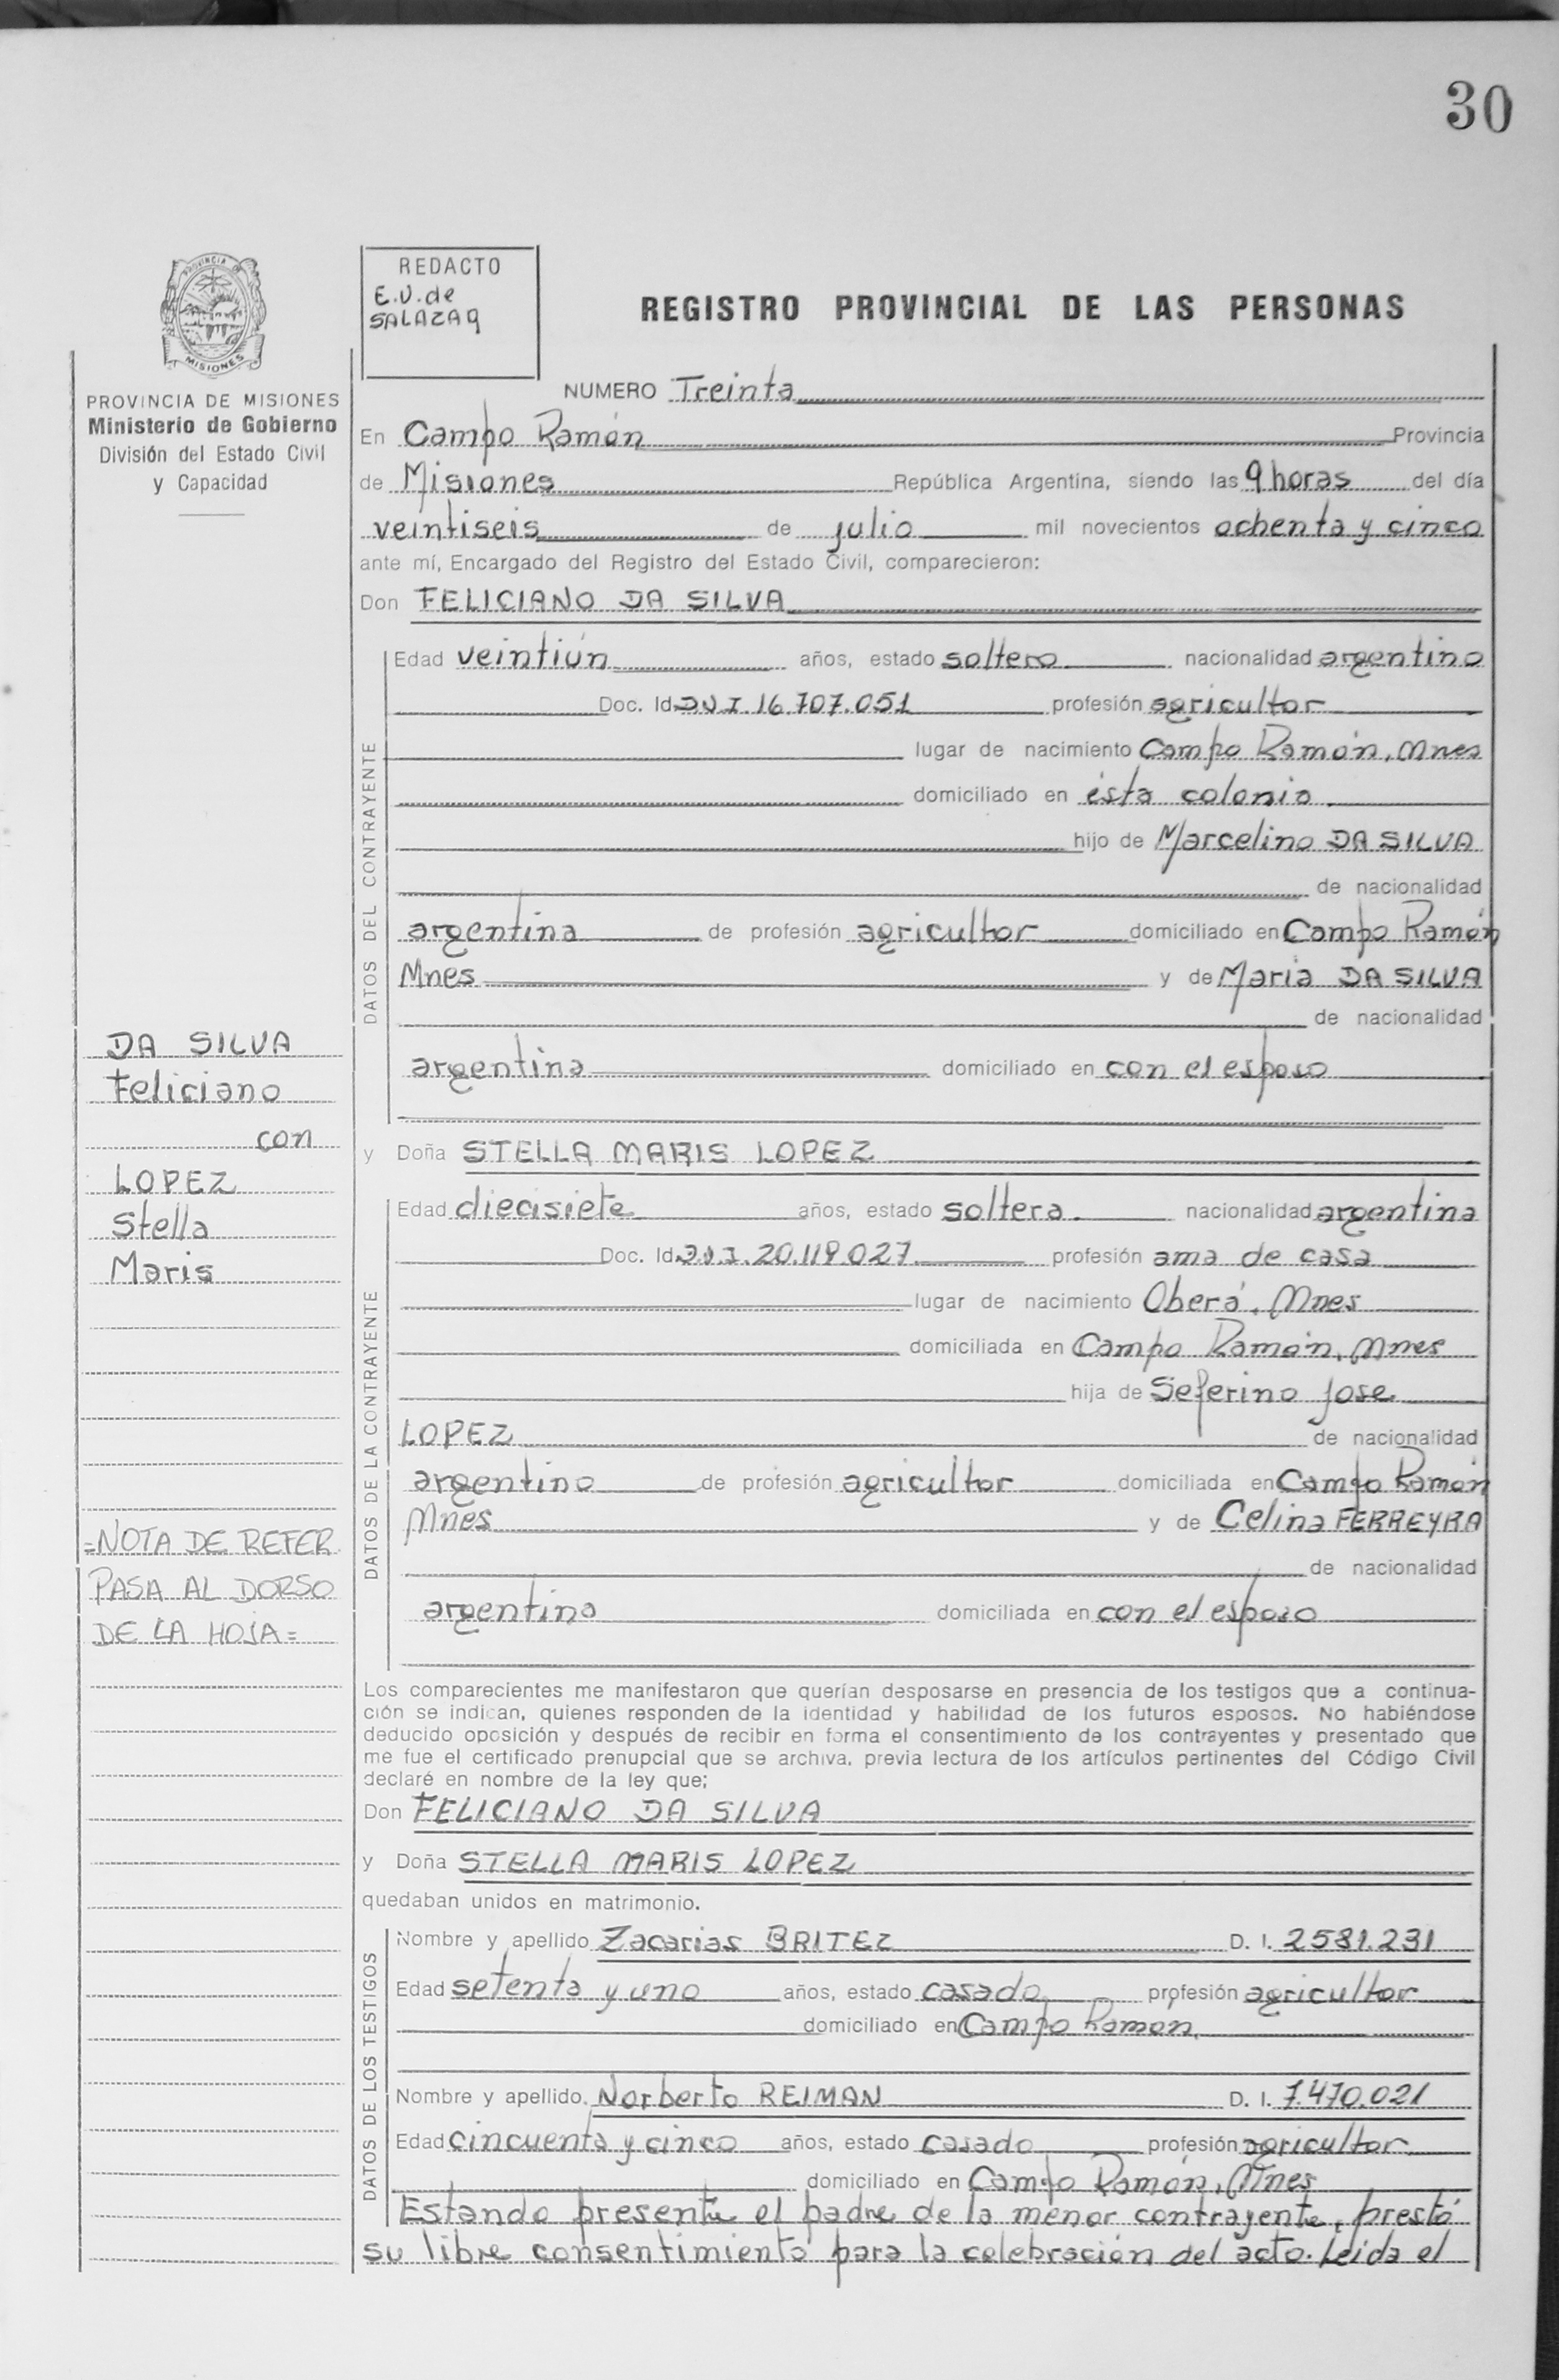 30
PROVINCIA DE
MISIONES
PROVINCIA DE MISIONES
Ministerio de Gobierno
División del Estado Civil
y Capacidad
REDACTO
E.V. de
SALAZAR
REGISTRO PROVINCIAL DE LAS PERSONAS
NUMERO Treinta
En Campo Ramón Provincia
de Misiones República Argentina, siendo las 9 horas del día
veintiseis de julio mil novecientos ochenta y cinco
ante mí, Encargado del Registro del Estado Civil, comparecieron:
Don FELICIANO DA SILVA
DATOS DEL CONTRAYENTE
Edad veintiún años, estado soltero nacionalidad argentino
Doc. Id. DNI. 16.707.051 profesión agricultor
lugar de nacimiento Campo Ramón, Mnes
domiciliado en ésta colonia.
hijo de Marcelino DA SILVA
de nacionalidad
argentina de profesión agricultor domiciliado en Campo Ramón
Mnes y de Maria DA SILVA
de nacionalidad
argentina domiciliado en con el esposo
DA SILVA
Feliciano
con
LOPEZ
Stella
Maris
=NOTA DE REFER.
PASA AL DORSO
DE LA HOJA=
y Doña STELLA MARIS LOPEZ
DATOS DE LA CONTRAYENTE
Edad diecisiete años, estado soltera. nacionalidad argentina
Doc. Id. DNI. 20.119.027 profesión ama de casa
lugar de nacimiento Oberá, Mnes
domiciliada en Campo Ramón, Mnes
hija de Seferino Jose
LOPEZ de nacionalidad
argentino de profesión agricultor domiciliada en Campo Ramón
Mnes y de Celina FERREYRA
de nacionalidad
argentina domiciliada en con el esposo
Los comparecientes me manifestaron que querían desposarse en presencia de los testigos que a continua-
ción se indican, quienes responden de la identidad y habilidad de los futuros esposos. No habiéndose
deducido oposición y después de recibir en forma el consentimiento de los contrayentes y presentado que
me fue el certificado prenupcial que se archiva, previa lectura de los artículos pertinentes del Código Civil
declaré en nombre de la ley que;
Don FELICIANO DA SILVA
y Doña STELLA MARIS LOPEZ
quedaban unidos en matrimonio.
DATOS DE LOS TESTIGOS
Nombre y apellido Zacarias BRITEZ D. I. 2581.231
Edad setenta y uno años, estado casado profesión agricultor
domiciliado en Campo Ramón.
Nombre y apellido. Norberto REIMAN D. I. 7.470.021
Edad cincuenta y cinco años, estado casado profesión agricultor
domiciliado en Campo Ramón, Mnes
Estando presente el padre de la menor contrayente, prestó
su libre consentimiento para la celebración del acto. Leida el